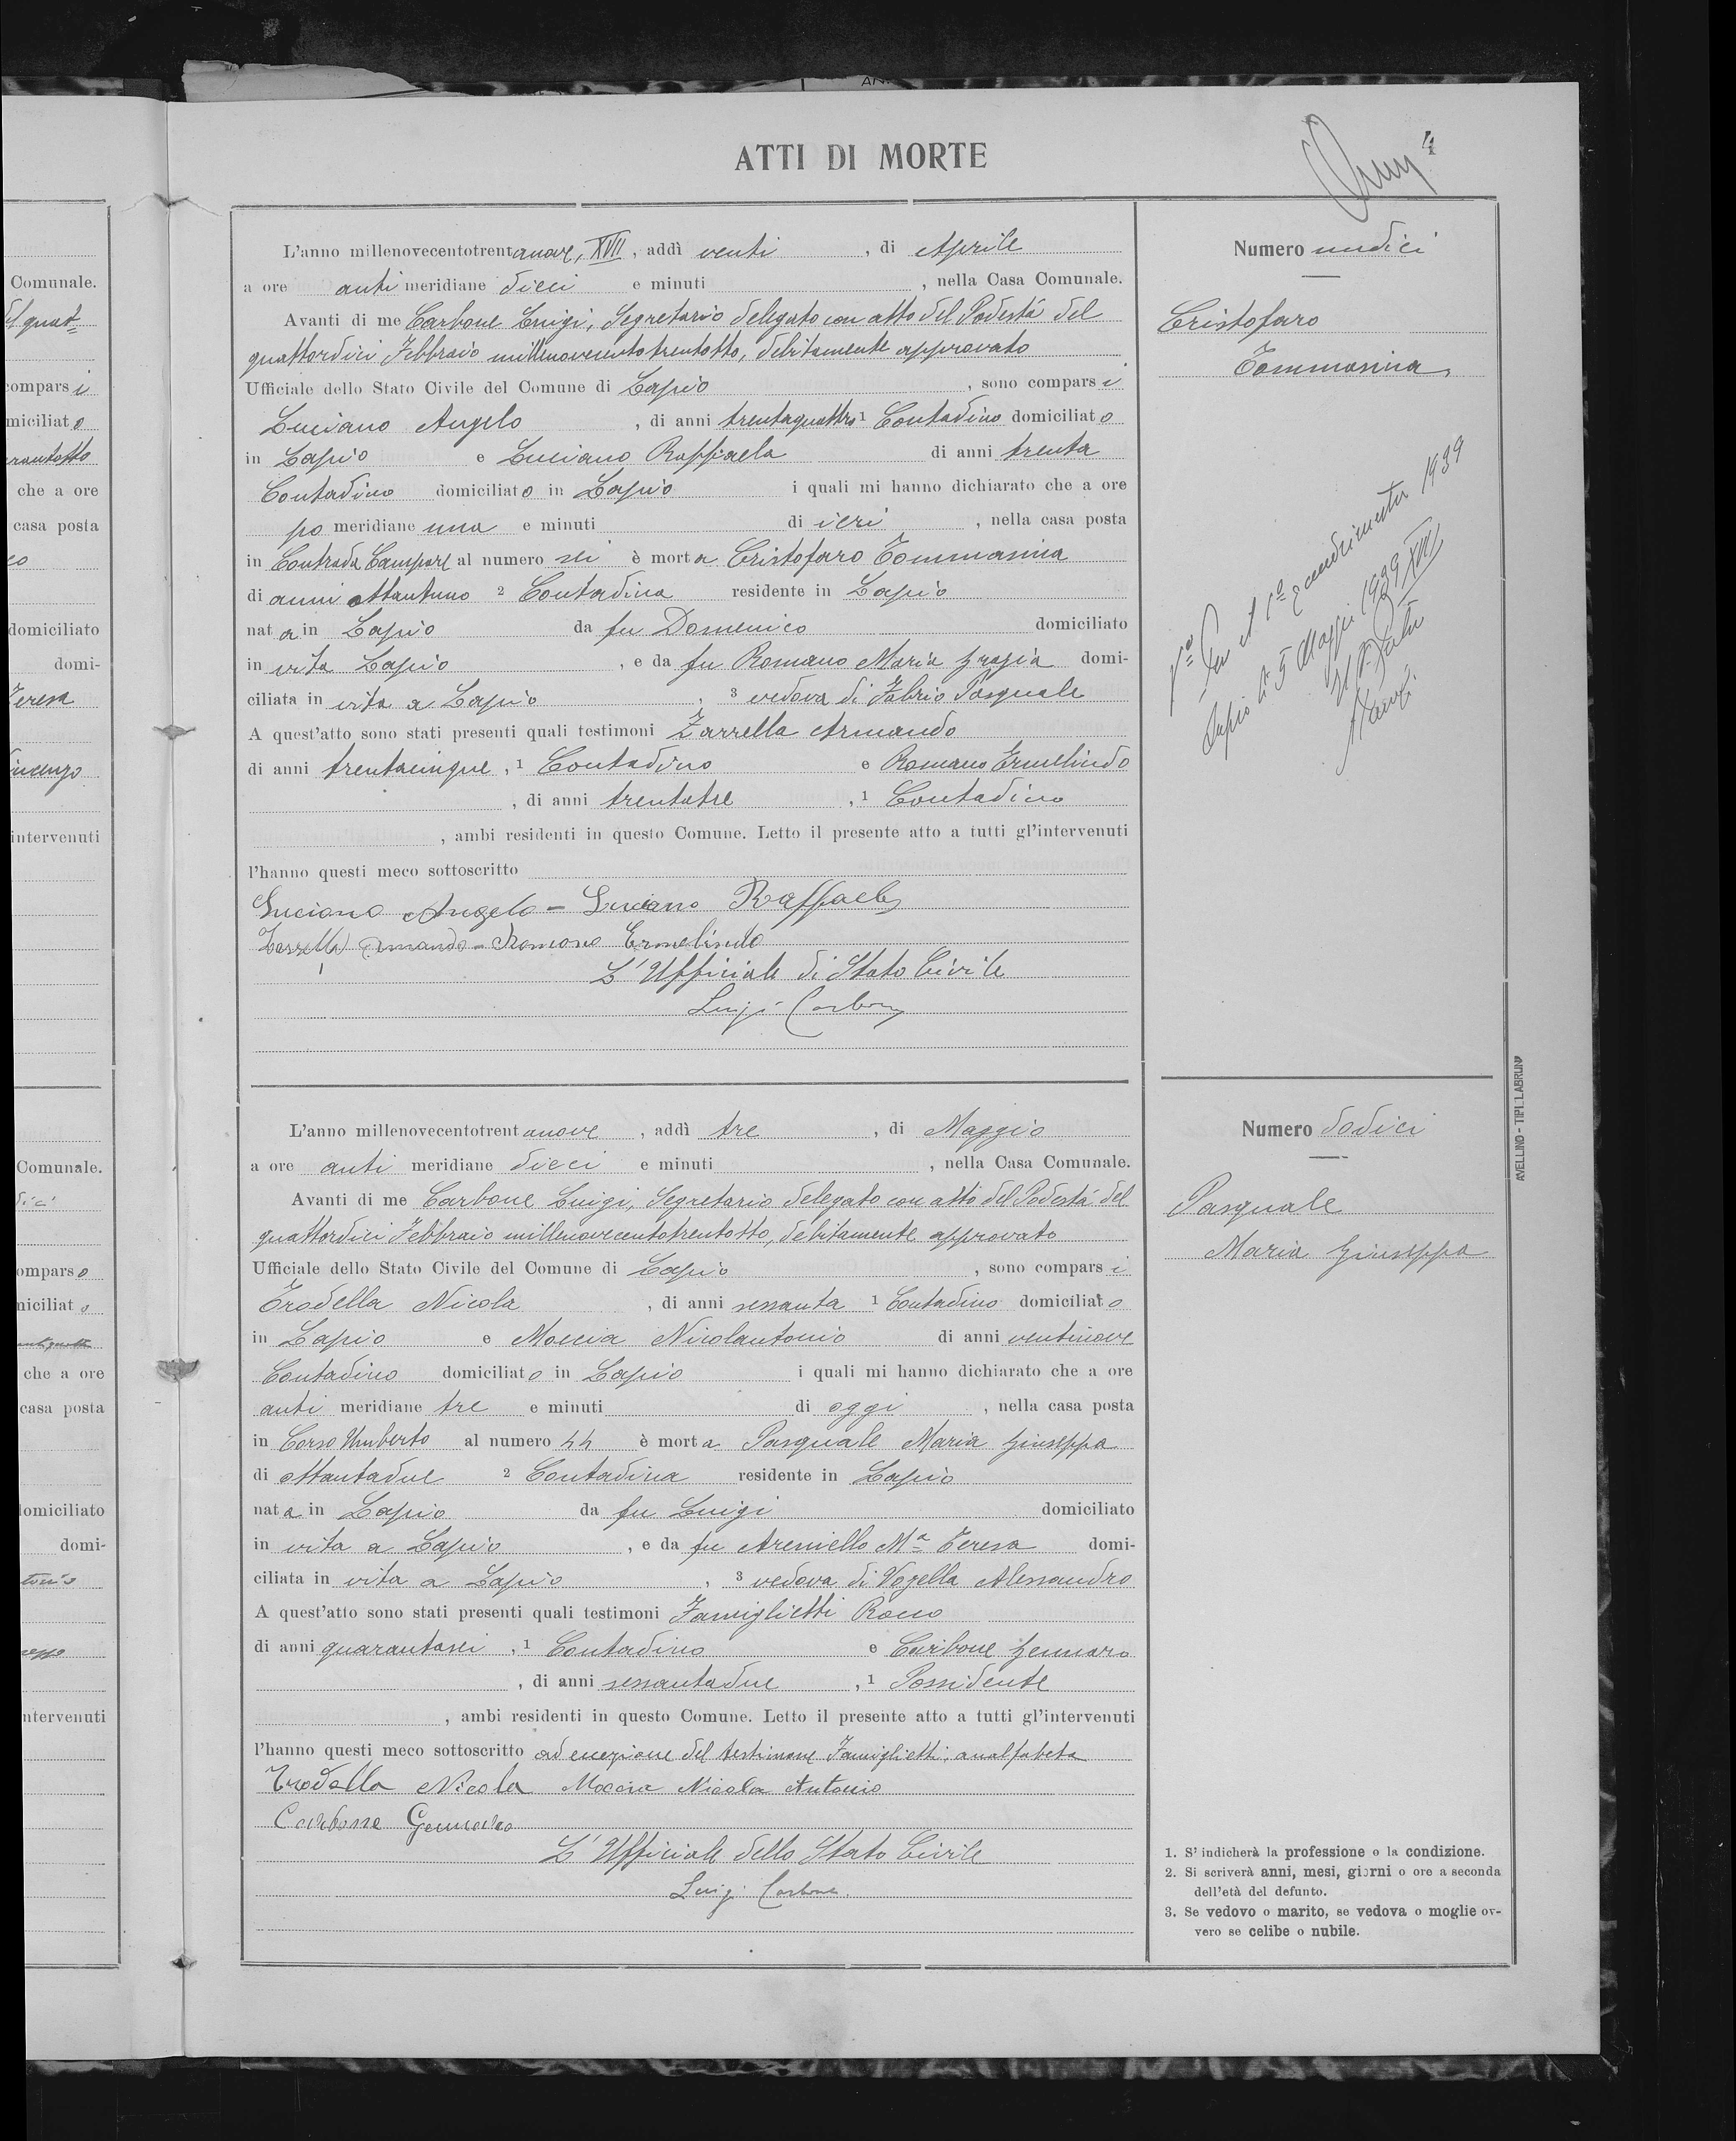 ATTI DI MORTE
4
L'anno millenovecentotrentanove, XVII, addì venti, di Aprile
a ore anti meridiane dieci e minuti, nella Casa Comunale.
Avanti di me Carbone Luigi, Segretario delegato con atto del Podestà del
quattordici Febbraio millenovecentotrentotto, debitamente approvato
Ufficiale dello Stato Civile del Comune di Lapio, sono comparsi
Luciano Angelo, di anni trentaquattro 1 Contadino domiciliato
in Lapio e Luciano Raffaela di anni trenta
Contadino domiciliato in Lapio i quali mi hanno dichiarato che a ore
po meridiane una e minuti di ieri, nella casa posta
in Contrada Campore al numero sei è morta Cristofaro Tommasina
di anni ottantuno 2 Contadina residente in Lapio
nata in Lapio da fu Domenico domiciliato
in vita Lapio, e da fu Romano Maria Grazia domi-
ciliata in vita a Lapio, 3 vedova di Fabrio Pasquale
A quest'atto sono stati presenti quali testimoni Zarrella Armando
di anni trentacinque, 1 Contadino e Romano Ermelindo
, di anni trentatre, 1 Contadino
, ambi residenti in questo Comune. Letto il presente atto a tutti gl'intervenuti
l'hanno questi meco sottoscritto
Luciano Angelo = Luciano Raffaele
Zarrella Armando = Romano Ermelindo
L'Ufficiale di Stato Civile
Luigi Carbone
Numero undici
Cristofaro
Tommasina
Lapio li 5 Maggio 1939 XVII
L'anno millenovecentotrentanove, addì tre, di Maggio
a ore anti meridiane dieci e minuti, nella Casa Comunale.
Avanti di me Carbone Luigi, Segretario delegato con atto del Podestà del
quattordici Febbraio millenovecentotrentotto, debitamente approvato
Ufficiale dello Stato Civile del Comune di Lapio, sono comparsi
Trodella Nicola, di anni sessanta 1 Contadino domiciliato
in Lapio e Moccia Nicolantonio di anni ventinove
Contadino domiciliato in Lapio i quali mi hanno dichiarato che a ore
anti meridiane tre e minuti di oggi, nella casa posta
in Corso Umberto al numero 44 è morta Pasquale Maria Giuseppa
di ottantadue 2 Contadina residente in Lapio
nata in Lapio da fu Luigi domiciliato
in vita a Lapio, e da fu Areniello Mª Teresa domi-
ciliata in vita a Lapio, 3 vedova di Vozella Alessandro
A quest'atto sono stati presenti quali testimoni Famiglietti Rocco
di anni quarantasei, 1 Contadino e Carbone Gennaro
, di anni sessantadue, 1 Possidente
, ambi residenti in questo Comune. Letto il presente atto a tutti gl'intervenuti
l'hanno questi meco sottoscritto ad eccezione del testimone Famiglietti, analfabeta
Trodella Nicola Moccia Nicola Antonio
Carbone Gennaro
L'Ufficiale dello Stato Civile
Luigi Carbone.
Numero dodici
Pasquale
Maria Giuseppa
1. S'indicherà la professione o la condizione.
2. Si scriverà anni, mesi, giorni o ore a seconda
dell'età del defunto.
3. Se vedovo o marito, se vedova o moglie ov-
vero se celibe o nubile.
AVELLINO - TIP. LABRUNA